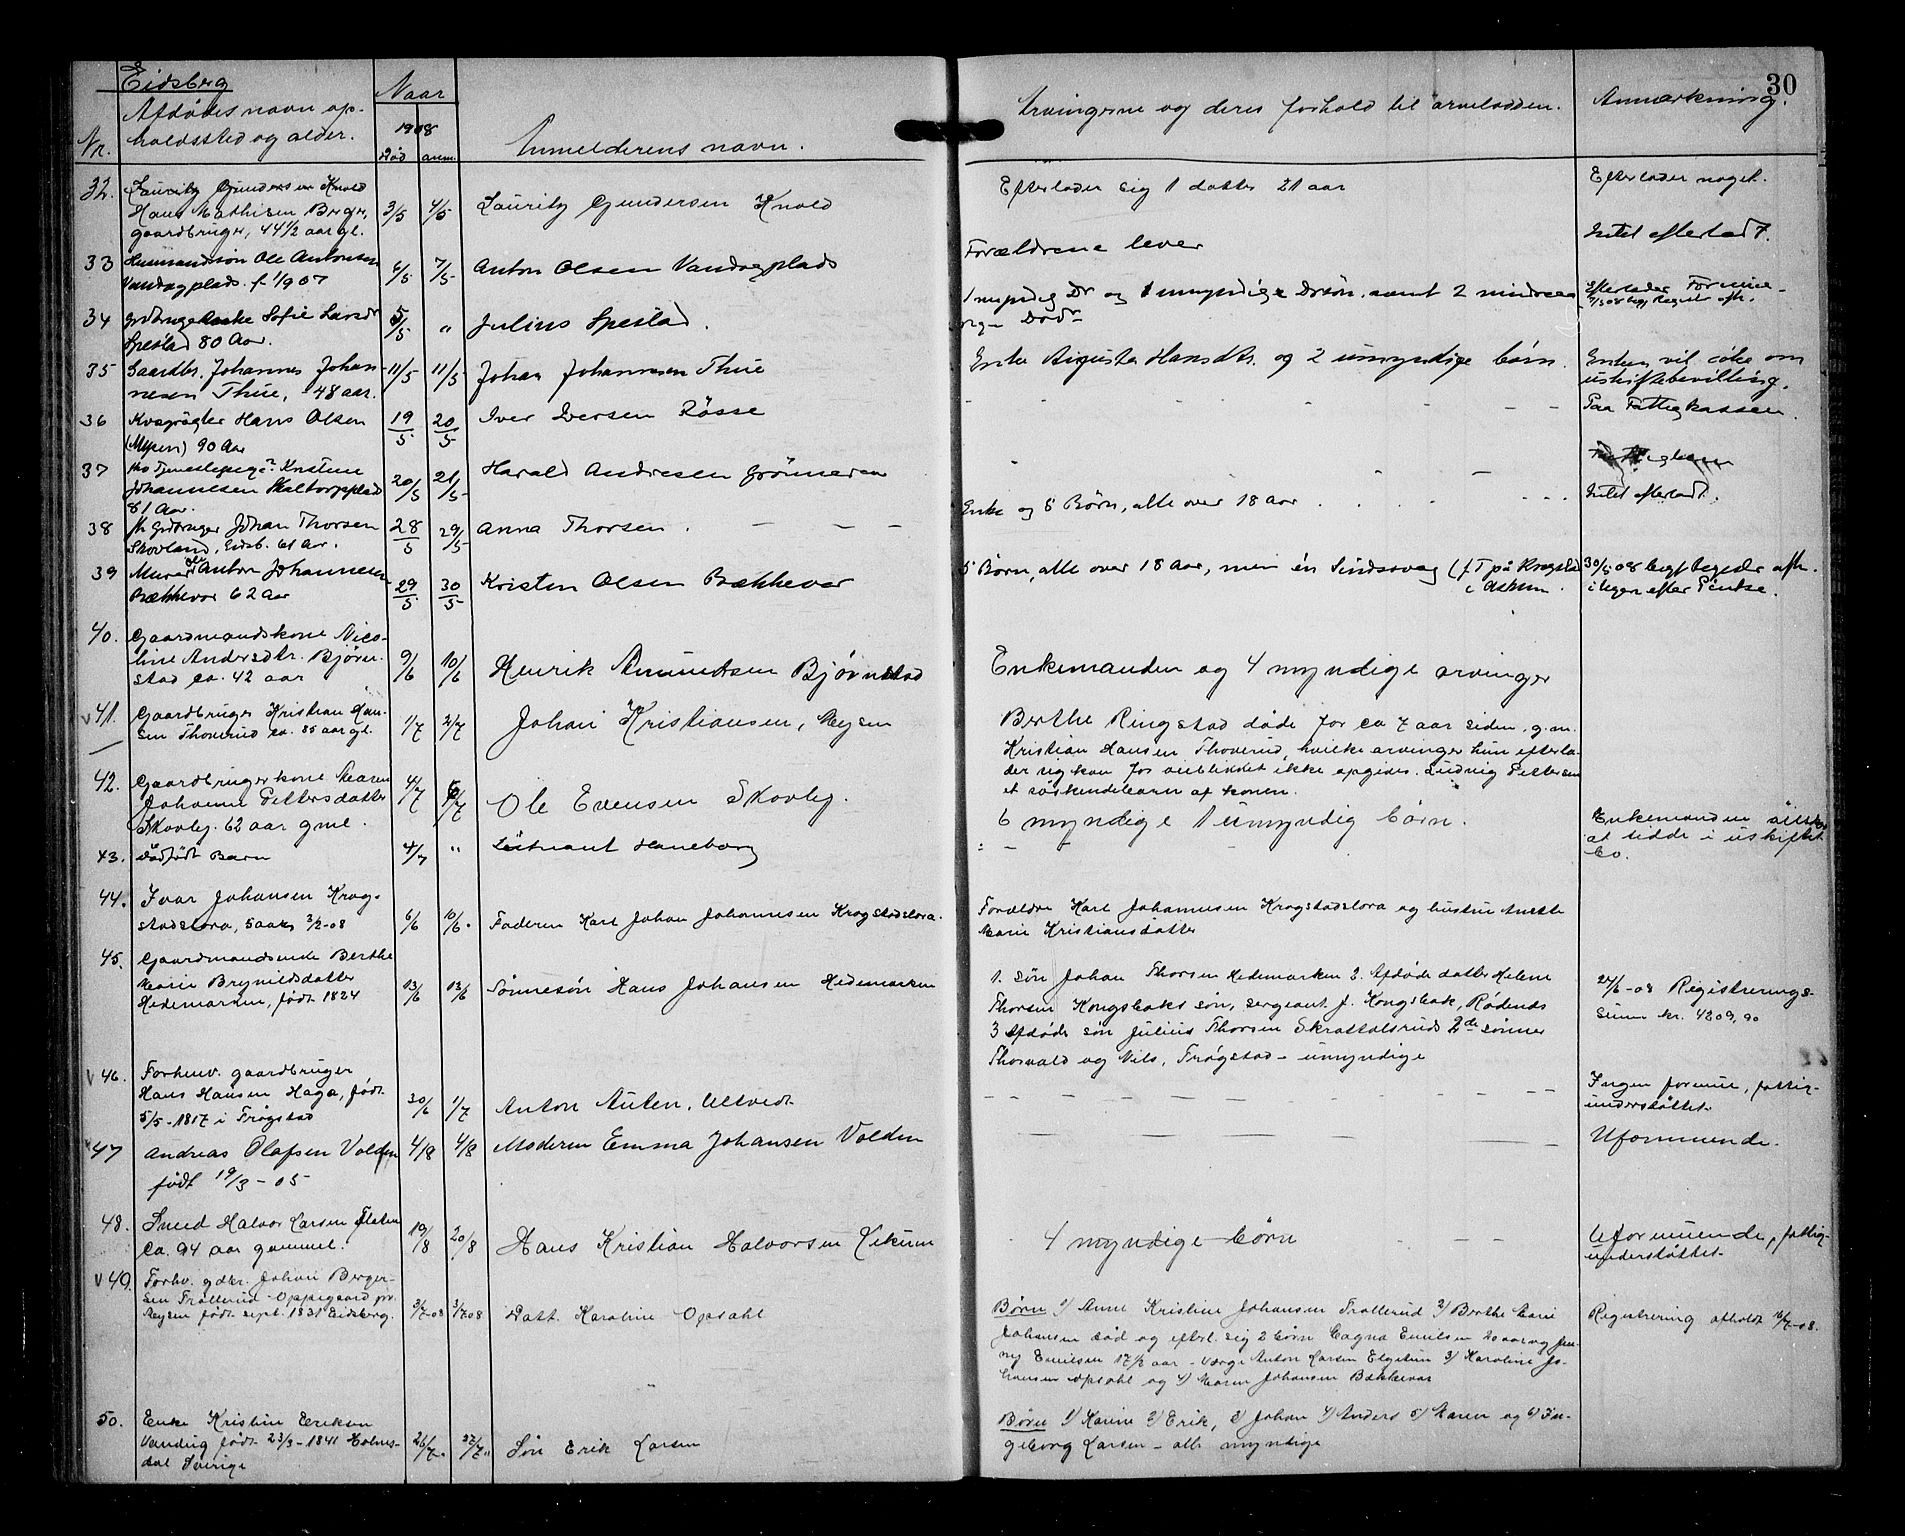 30
Eidsberg
Nr.
Afdødes navn op-
holdssted og alder.
Naar
1908
Død anm.
Anmelderens navn.
Arvingerne og deres forhold til arveladden.
Anmærkning.
32. Lauritz Gundersen Knold
Hans Mathisen Berger,
gaardbruger, 44 1/2 aar gl.
3/5 4/5 Lauritz Gundersen Knold
Efterlader sig 1 datter 21 aar
Efterlader noget.
33 Husmandssøn Ole Antonsen
Vandugplads. f. 1/9 07
6/5 7/5 Anton Olsen Vandugplads
Forældrene lever
Intet efterladt.
34 Sofie Larsdr
Spestad 80 Aar.
5/5 " Julius Spestad.
1 myndig Dr og 1 umyndige Drsøn, samt 2 mindre
Efterlader Formue
35 Gaardbr. Johannes Johan-
nesen Thue, 48 aar.
11/5 11/5 Johan Johannesen Thue
Enke Augusta Hansdtr. og 2 umyndige børn.
Enken vil søke om
uskiftebevilling.
36 Hans Olsen
(Mysen) 90 Aar
19/5 20/5 Iver Iversen Røsse
Paa Fattigkassen.
37 Kristine
Johannesen Skaltorpplads
81 Aar.
20/5 21/5 Harald Andresen Grønneren
Intet efterladt.
38 fh. Grdbruger Johan Thorsen
Skovland, Eidsb. 61 Aar.
28/5 29/5 Anna Thorsen.
Enke og 8 Børn, alle over 18 aar
39 Murer Anton Johannesen
Bækkevar 62 Aar
29/5 30/5 Kristen Olsen Bækkevar
5 Børn, alle over 18 Aar, men én Sindssvag (f. T. på Krogstad
i Askim.
30/5 08 begj. Register afh.
i ugen efter Pintse.
40. Gaardmandskone Nico-
line Andersdtr. Bjørn-
stad ca. 42 aar
9/6 10/6 Henrik Amundsen Bjørnstad
Enkemanden og 4 myndige arvinger
41. Gaardbruger Kristian Han-
sen Thoverud ca. 85 aar gl.
1/7 2/7 Johan Kristiansen, Mysen
Berthe Ringstad døde for ca 7 aar siden, g.m.
Kristian Hansen Thoverud, hvilke arvinger hun efterla-
der sig kan for øieblikket ikke opgives. Ludvig Pettersen
et søskendebarn af konen.
42. Gaardbrugerkone Maren
Johanne Pettersdatter
Skovby. 62 aar gml.
4/7 6/7 Ole Evensen Skovby.
6 myndige 1 umyndig børn.
Enkemanden
at sidde i uskiftet
bo.
43. Dødfødt Barn
4/7 " Løitnant Haneborg
44. Ivar Johansen Krog-
stadslora, 3/2-08
6/6 10/6. Faderen Karl Johan Johannesen Krogstadslora.
Forældre Karl Johannesen Krogstadslora og hustru Anette
Marie Kristiansdatter
45. Gaardmandsenke Berthe
Marie Brynildsdatter
Hedemarken, født 1824
13/6 13/6 Sønnesøn Hans Johansen Hedemarken
1. søn Johan Thorsen Hedemarken 2. Afdøde datter Helene
Thorsen Kongsbaks søn, sergeant J. Kongsbak, Rødenes
3 Afdøde søn Julius Thorsen Skrattalsruds 2de sønner
Thorvald og Nils, Trøgstad - umyndige
24/6-08 Registrerings-
sum kr. 4309,90
46. Forhenv. gaardbruger
Hans Hansen Haga, født
5/5-1817 i Trøgstad
30/6 1/7 Anton Auten, Ultvedt
Ingen formue, fattig-
understøttet.
47 Andreas Olafsen Volden
født 19/3-05
4/8 4/8 Moderen Emma Johansen Volden
Uformuende.
48. Smed Halvor Larsen Flaten
Ca. 94 aar gammel.
19/8 20/8 Hans Kristian Halvorsen Lekum
4 myndige børn
Uformuende, fattig-
understøttet.
49. Forhv. gdbr. Johan Berger-
sen Trollerud-Oppegaard pr.
Mysen født sept. 1831 Eidsberg.
3/7 08 3/7 08 Datt. Karoline Opsahl
Børn 1) Anne Kristine Johansen Trollerud 2) Berthe Marie
Johansen død og efterl. sig 2 børn Magna Emilsen 20 aar og Jen-
ny Emilsen 17 1/2 aar - Verge Anton Larsen Elgetun 3) Karoline Jo-
hansen Opsahl og 4) Maren Johansen Bækkevar
Registrering afholdt 16/7-08.
50. Enke Kristine Eriksen
Vandug født 23/3-1841 Holmes-
dal Sverige
26/7 27/7 Søn Erik Larsen
Børn 1) Karine 2) Erik, 3) Johan 4) Anders 5) Maren og 6) In-
geborg Larsen - alle myndige